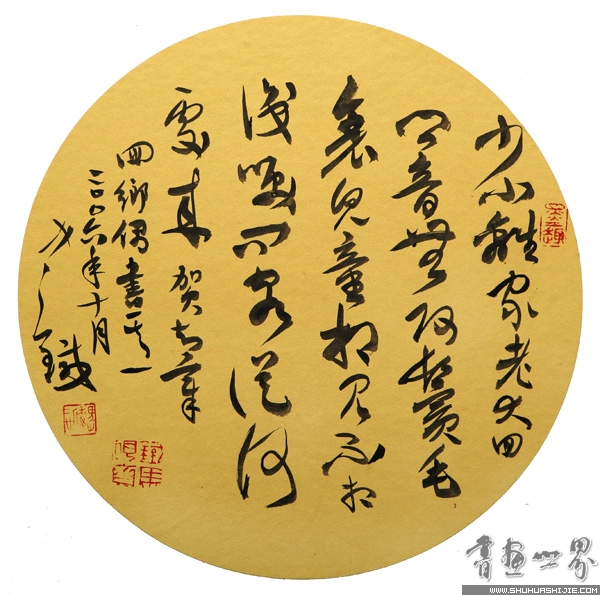 少小離家老大回
鄉音無改鬢毛
衰兒童相見不相
識笑問客從何
處來 賀知章
回鄉偶書其一
二〇〇六年十月
書畫世界
WWW.SHUHUASHIJIE.COM